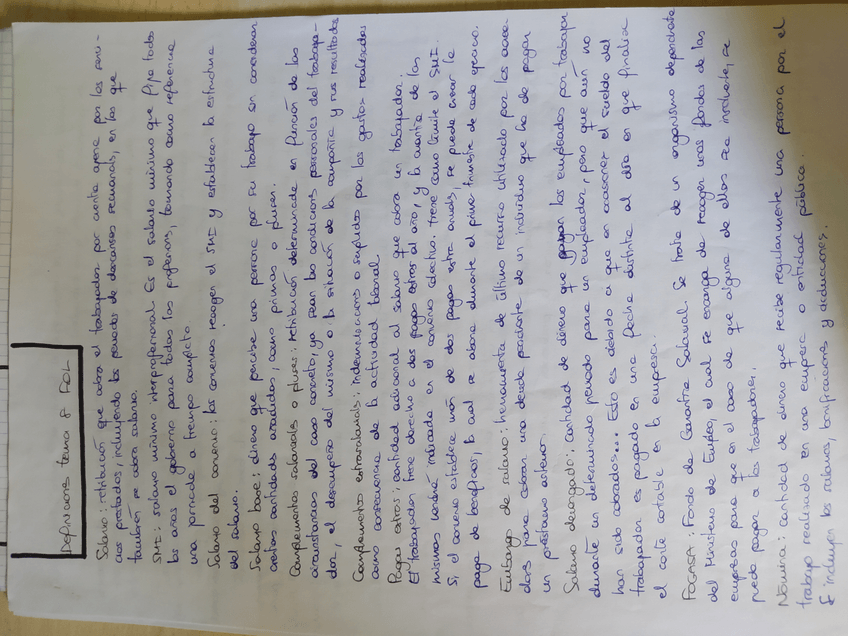 Definiciones tema 8 FOL
Salario: retribución que cobra el trabajador por cuenta ajena por los servi-
cios prestados, incluyendo los periodos de descanso semanals, en los que
también se cobra salario.
SMI: salario mínimo interprofesional. Es el salario mínimo que fija todos
los años el gobierno para todas las profesions, tomando como referencia
una jornada a tiempo completo
Salario del convenio: los convenios recogen el SMI y establecen la estructura
del salario.
Salario base: dinero que percibe una persona por su trabajo sin considerar
ciertas cantidades añadidas, como primas o pluses.
Complementos salarials o pluses: retribución determinada en función de las
circunstancias del caso concreto, ya sean las condicions personales del trabaja-
dor, el desempeño del mismo o la situación de la compañía y sus resultados
Complementos extrasalarials: indemnizacions o suplidos por los gastos realizados
como consecuencia de la actividad laboral
Pagas extras: cantidad adicional al salario que cobra un trabajador.
El trabajador tiene derecho a dos pagas extras al año, y la cuantía de las
mismas vendrá indicada en el convenio colectivo. Tiene como límite el SMI.
Si el convenio establece más de dos pagas extra anuals, se puede crear la
paga de beneficios, la cual se abona durante el primer trimestre de cada ejercicio.
Embargo de salario: herramienta de último recurso utilizado por los acree-
dors para cobrar una deuda pendiente de un individuo que ha de pagar
un préstamo anterior.
Salario devengado: cantidad de dinero que ganan los empleados por trabajar
durante un determinado periodo para un empleador, pero que aún no
han sido cobrados... Esto es debido a que en ocasiones el sueldo del
trabajador es pagado en una fecha distinta al día en que finaliza
el corte contable en la empresa.
FOGASA: Fondo de Garantía Salarial. Se trata de un organismo dependiente
del Ministerio de Empleo, el cual se encarga de recoger unos fondos de las
empresas para que en el caso de que alguna de ellas sea insolvente, se
pueda pagar a los trabajadores.
Nómina: cantidad de dinero que recibe regularmente una persona por el
trabajo realizado en una empresa o entidad pública.
Se incluyen los salarios, bonificaciones y deducciones.